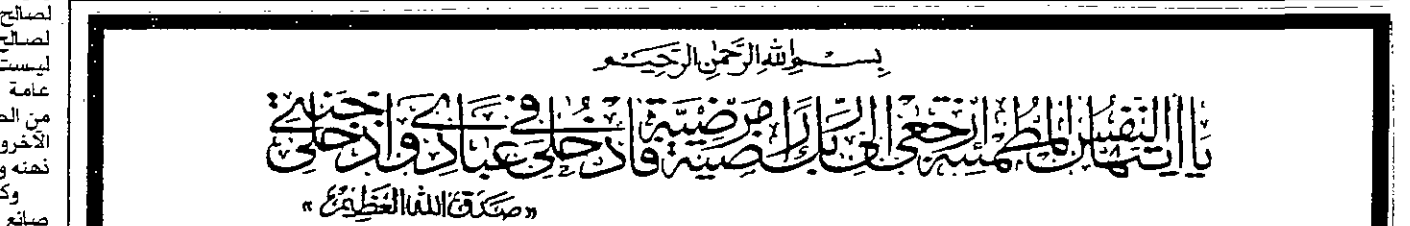 بسم الله الرحمن الرحيم
يا أيتها النفس المطمئنة ارجعي إلى ربك راضية مرضية فادخلي في عبادي وادخلي جنتي
« صدق الله العظيم »
لصالح
لصالح
ليست
عامة
من
الأخرو
ذهنه و
وك
صانع